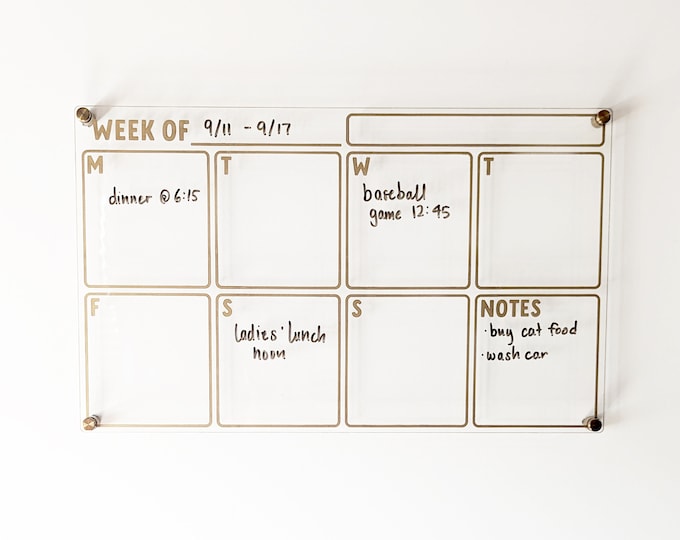 WEEK OF 9/11 - 9/17
M
dinner @ 6:15
T
W
baseball
game 12:45
T
F
S
ladies' lunch
noon
S
NOTES
·buy cat food
·wash car